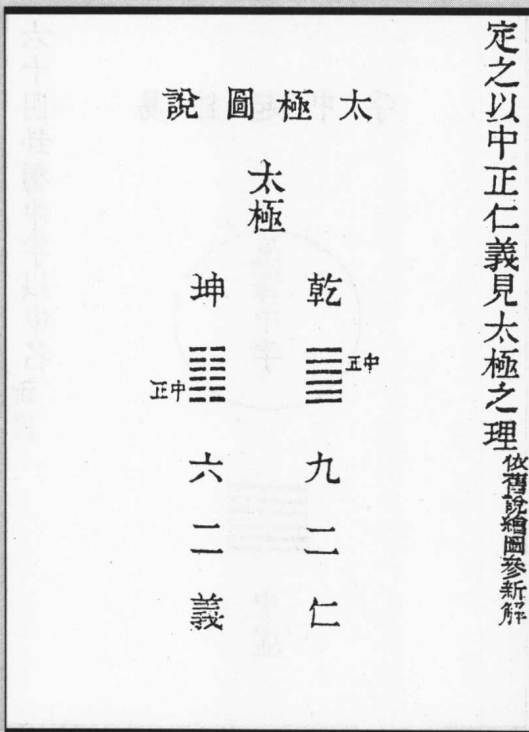 定之以中正仁義見太極之理
依舊說繪圖參新解
太極圖說
太極
乾
中正
九二仁
坤
中正
六二義